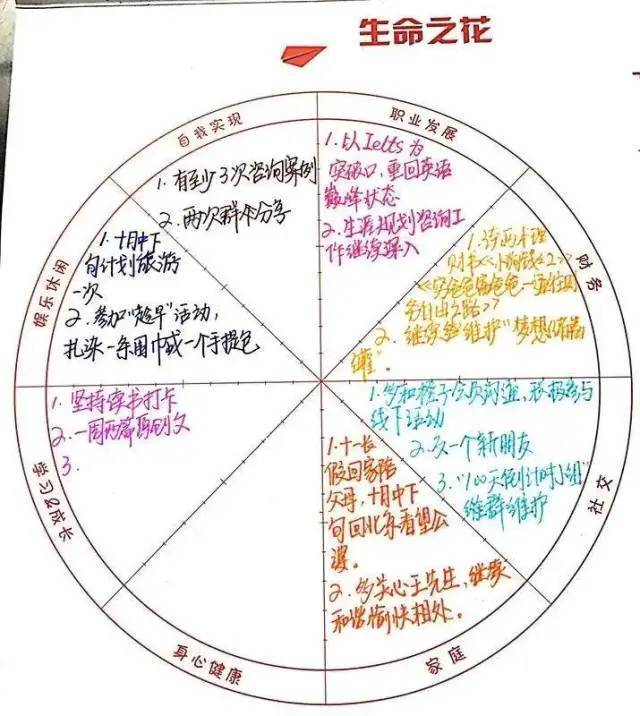 生命之花
自我实现
1. 有至少3次咨询案例
2. 两次群分享
职业发展
1. 以Ielts为
突破口，重回英语
巅峰状态
2. 生涯规划咨询工
作继续深入
财务
1. 读两本理
财书《小狗钱钱2》
《富爸爸穷爸爸
自由之路》
2. 继续维护"梦想储蓄
罐"。
社交
1. 多和橙子沟通，积极参与
线下活动
2. 交一个新朋友
3. "100天倒计时小组"
群维护
家庭
1. 十一长
假回家陪
父母，十月中下
旬回北京看望公
婆。
2. 多关心王先生，继续
和谐愉快相处。
身心健康
学习&成长
1. 坚持读书打卡
2. 一周两篇原创文
3.
娱乐休闲
1. 十月中下
旬计划旅游
一次
2. 参加"超早"活动，
扎染一条围巾或一个手提包